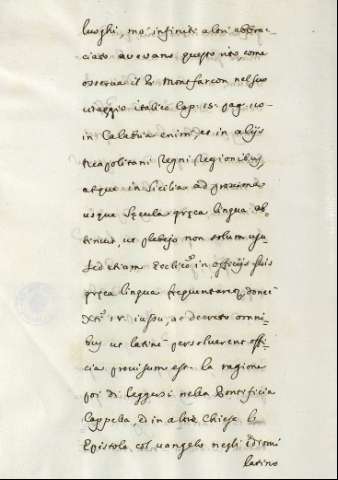 luoghi, mà infiniti altri abbrac=
ciato avevano questo rito, come
osserva il P. Montfaucon nel suo
viaggio italico Cap. 15. pag. 110.
in Calabria enim, et in alijs
Neapolitani Regni Regionibus
atque in Sicilia ad proxima
usque Sęcula gręca lingua ob=
tinuit, ut plebejo non solum usu
sed etiam in officijs suis
gręca lingua frequentaret, donec
iussu, ac decreto omni=
bus ut latinè persolverent offi=
cia provisum est. la ragione
poi di leggersi nella Pontificia
Cappella, ed in altre Chiese la
Epistola col vangelo negli Idiomi
latino